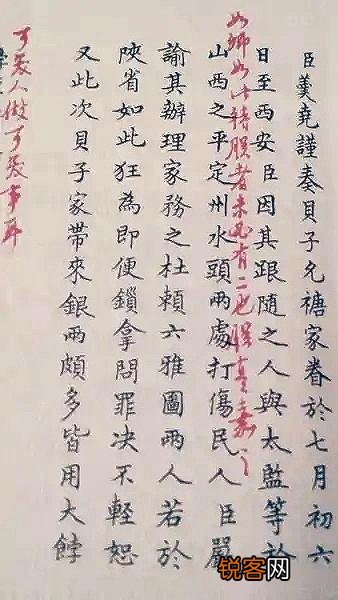 臣羹堯謹奏貝子允禟家眷於七月初六
日至西安臣因其跟隨之人與太監等於
如卿如此待朕者未有二也朕真嘉
山西之平定州水頭兩處打傷民人臣嚴
諭其辦理家務之杜賴六雅圖兩人若於
陝省如此狂為即便鎖拿問罪决不輕恕
又此次貝子家帶來銀兩頗多皆用大餑
可惡人做可惡事耳
锐客网